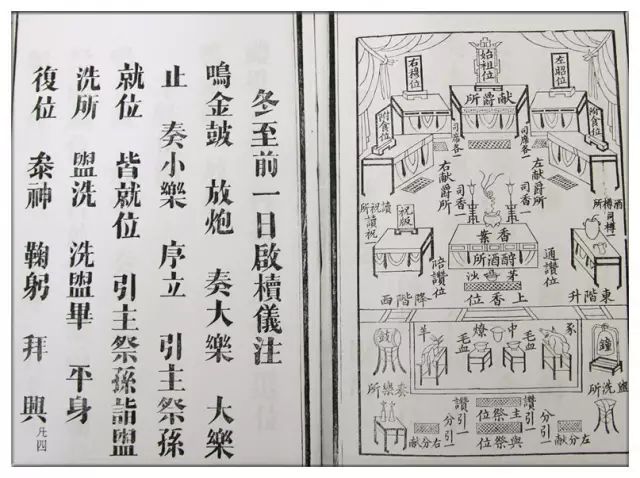 冬至前一日啟櫝儀注
鳴金鼓 放炮 奏大樂 大樂
止 奏小樂 序立 引主祭孫
就位 皆就位 引主祭孫詣盥
洗所 盥洗 洗盥畢 平身
復位 泰神 鞠躬 拜 興
始祖位
右穆位
左昭位
獻爵所
附食位
司席各一
司席各一
右献爵所
左献爵所
司香一
司香一
讀祝所
讀祝一
祝版
香案
酹酒所
茅
陪讚位
通讚位
降階西
上香位
東階升
鼓
羊
毛血
燎
中
毛血
豕
鐘
奏樂所
盥洗所
讚引一
主祭位
讚引一
分引一
與祭位
分引一
右分献
左分献